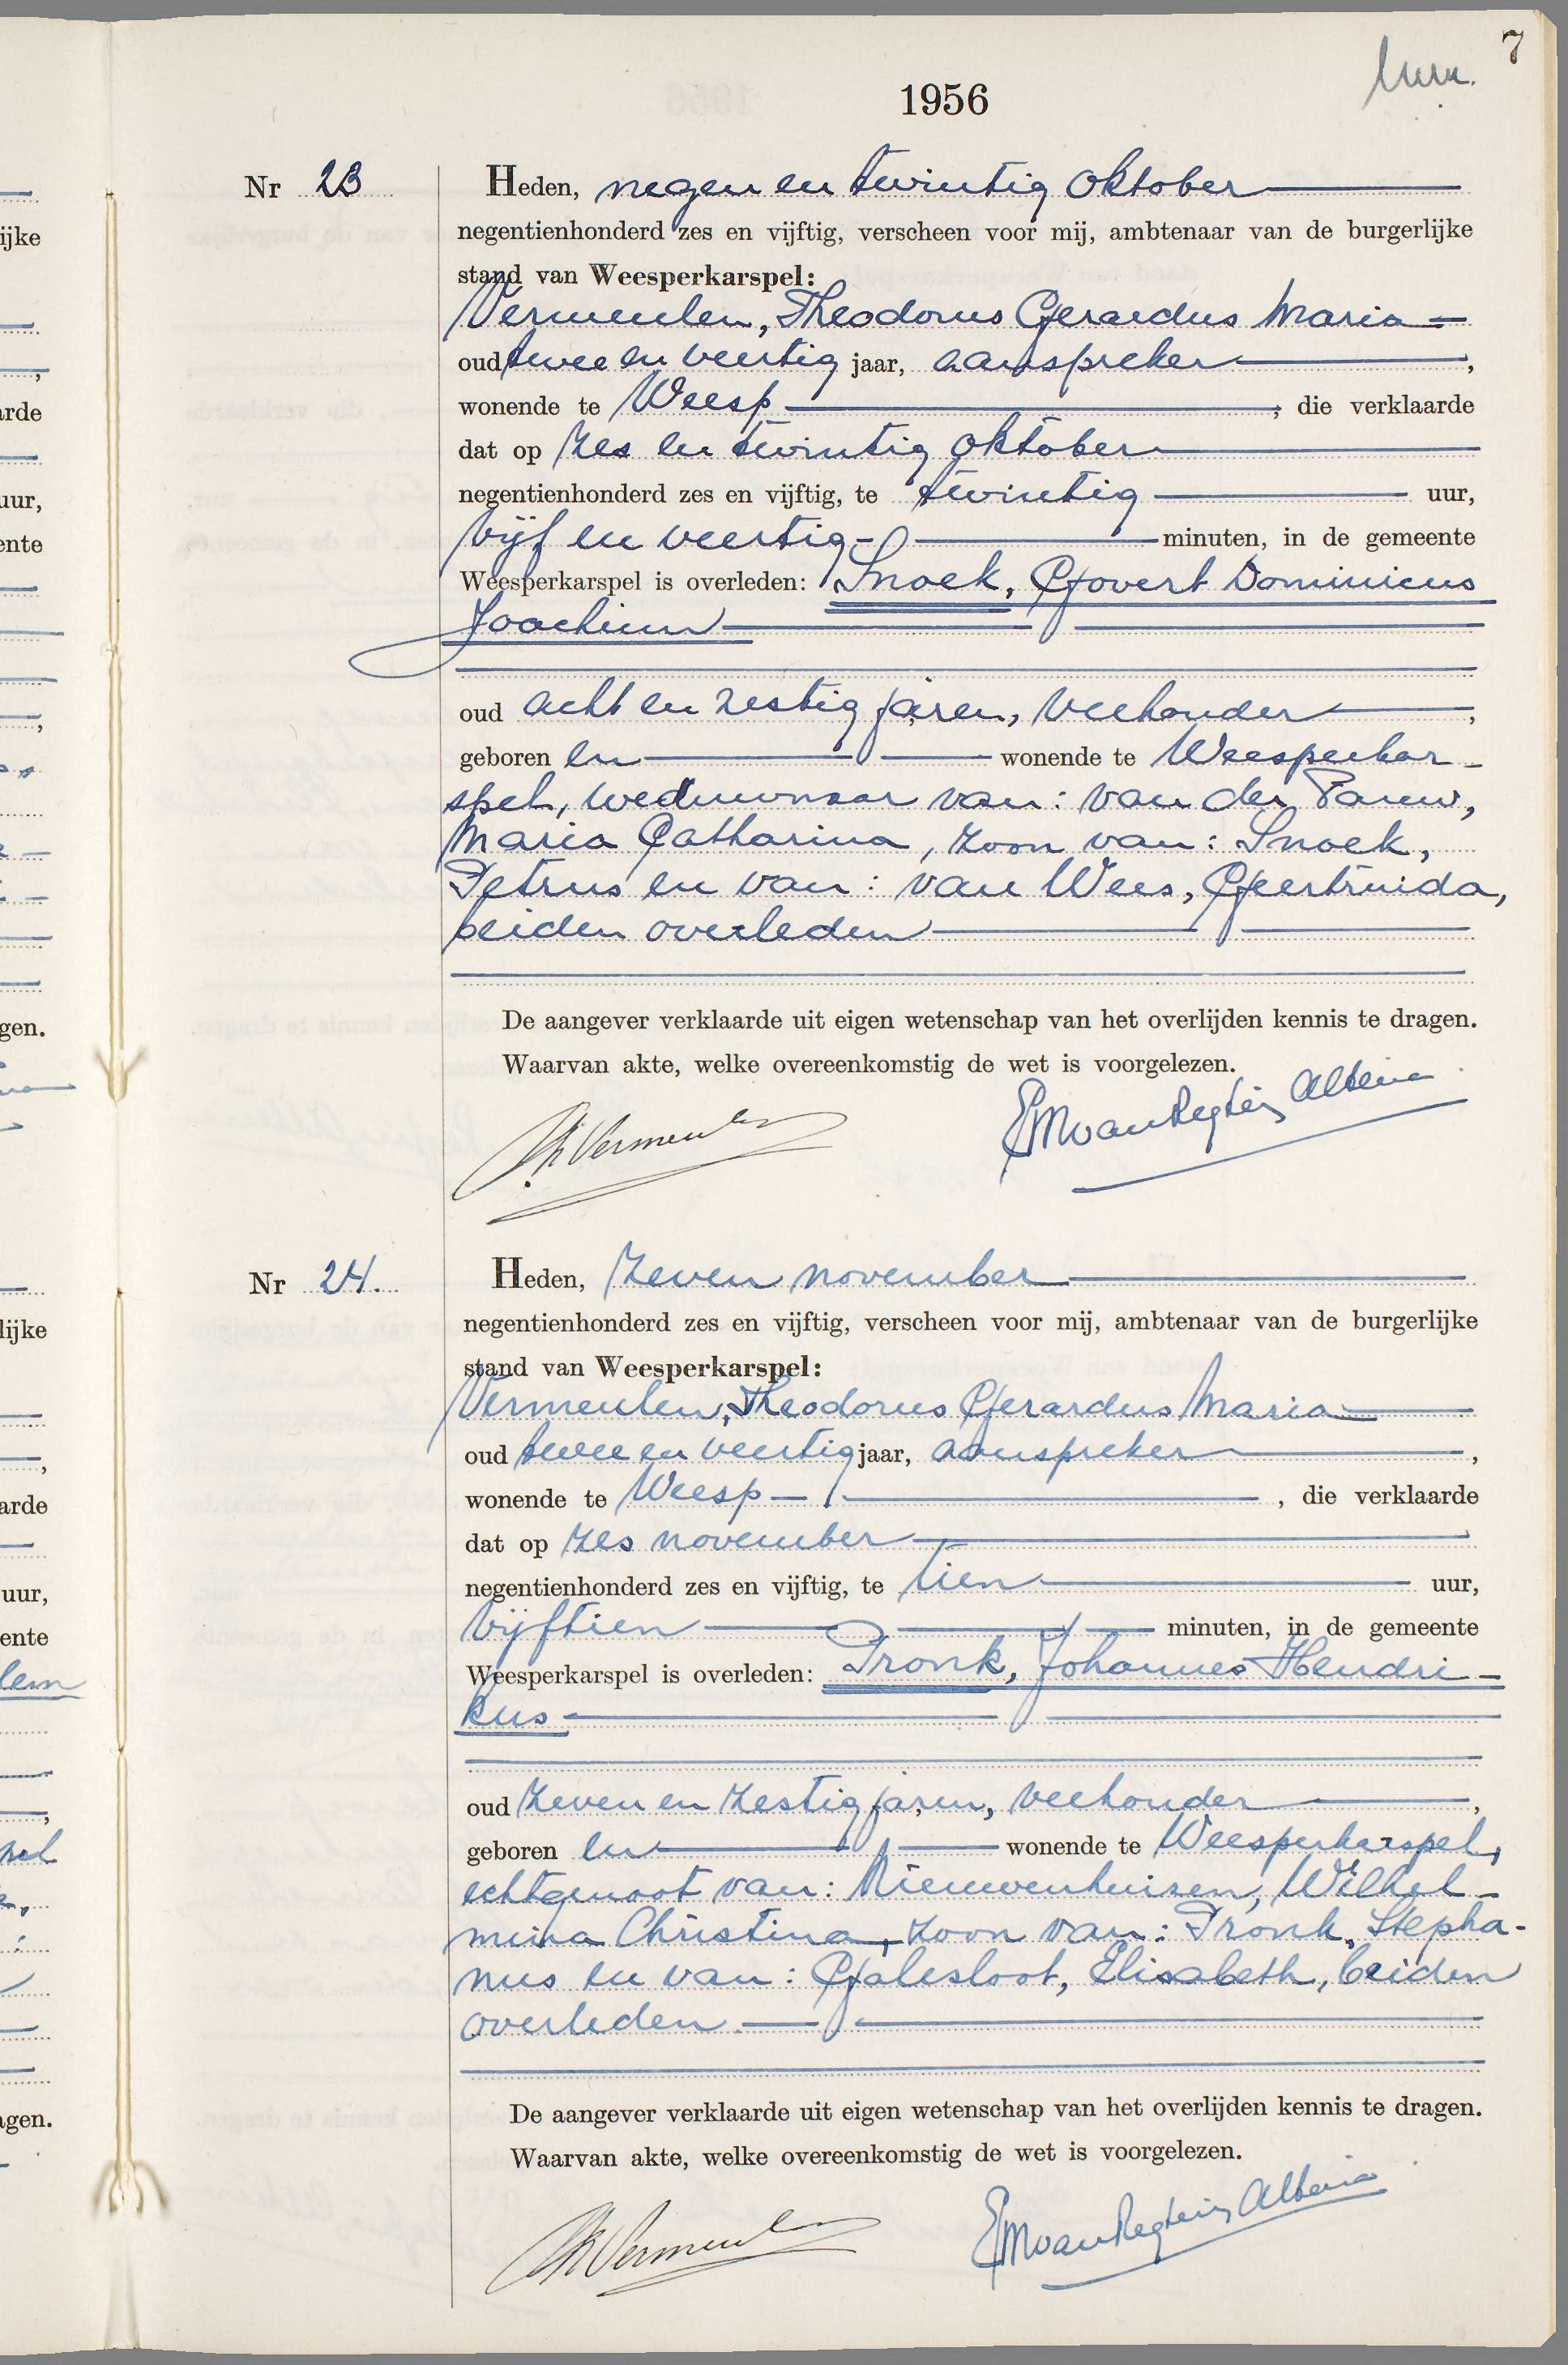 7
1956
Nr 23
Heden, negen en twintig oktober
negentienhonderd zes en vijftig, verscheen voor mij, ambtenaar van de burgerlijke
stand van Weesperkarspel:
Vermeulen, Theodorus Gerardus Maria
oud twee en veertig jaar, aanspreker,
wonende te Weesp, die verklaarde
dat op zes en twintig oktober
negentienhonderd zes en vijftig, te twintig uur,
vijf en veertig minuten, in de gemeente
Weesperkarspel is overleden: Snoek, Govert Dominicus
Joachim
oud acht en zestig jaren, veehouder,
geboren en wonende te Weesperkar-
spel, weduwnaar van: van der Pauw,
Maria Catharina, zoon van: Snoek,
Petrus en van: van Wees, Geertruida,
beiden overleden
De aangever verklaarde uit eigen wetenschap van het overlijden kennis te dragen.
Waarvan akte, welke overeenkomstig de wet is voorgelezen.
Th Vermeulen EM van Regteren Altena
Nr 24.
Heden, zeven november
negentienhonderd zes en vijftig, verscheen voor mij, ambtenaar van de burgerlijke
stand van Weesperkarspel:
Vermeulen, Theodorus Gerardus Maria
oud twee en veertig jaar, aanspreker,
wonende te Weesp, die verklaarde
dat op zes november
negentienhonderd zes en vijftig, te tien uur,
vijftien minuten, in de gemeente
Weesperkarspel is overleden: Pronk, Johannes Hendri-
kus
oud zeven en zestig jaren, veehouder,
geboren en wonende te Weesperkarspel,
echtgenoot van: Nieuwenhuizen, Wilhel-
mina Christina, zoon van: Pronk, Stepha-
nus en van: Galesloot, Elisabeth, beiden
overleden.
De aangever verklaarde uit eigen wetenschap van het overlijden kennis te dragen.
Waarvan akte, welke overeenkomstig de wet is voorgelezen.
Th Vermeulen EM van Regteren Altena